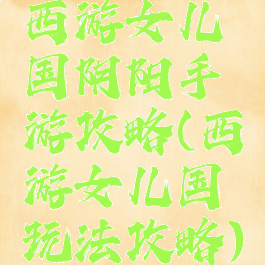 西游女儿
国阴阳手
游攻略(西
游女儿国
玩法攻略)